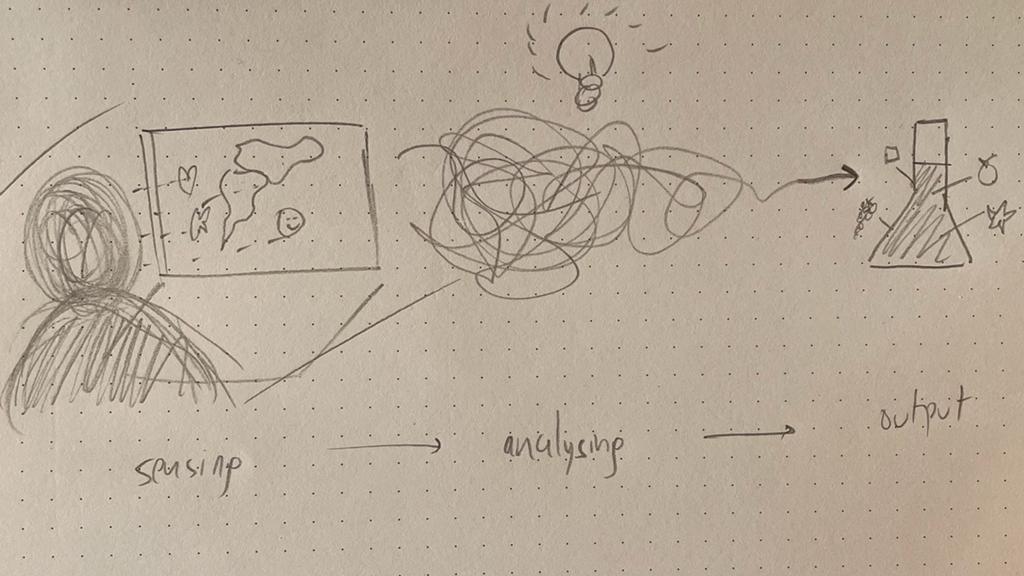 sensing
analysing
output